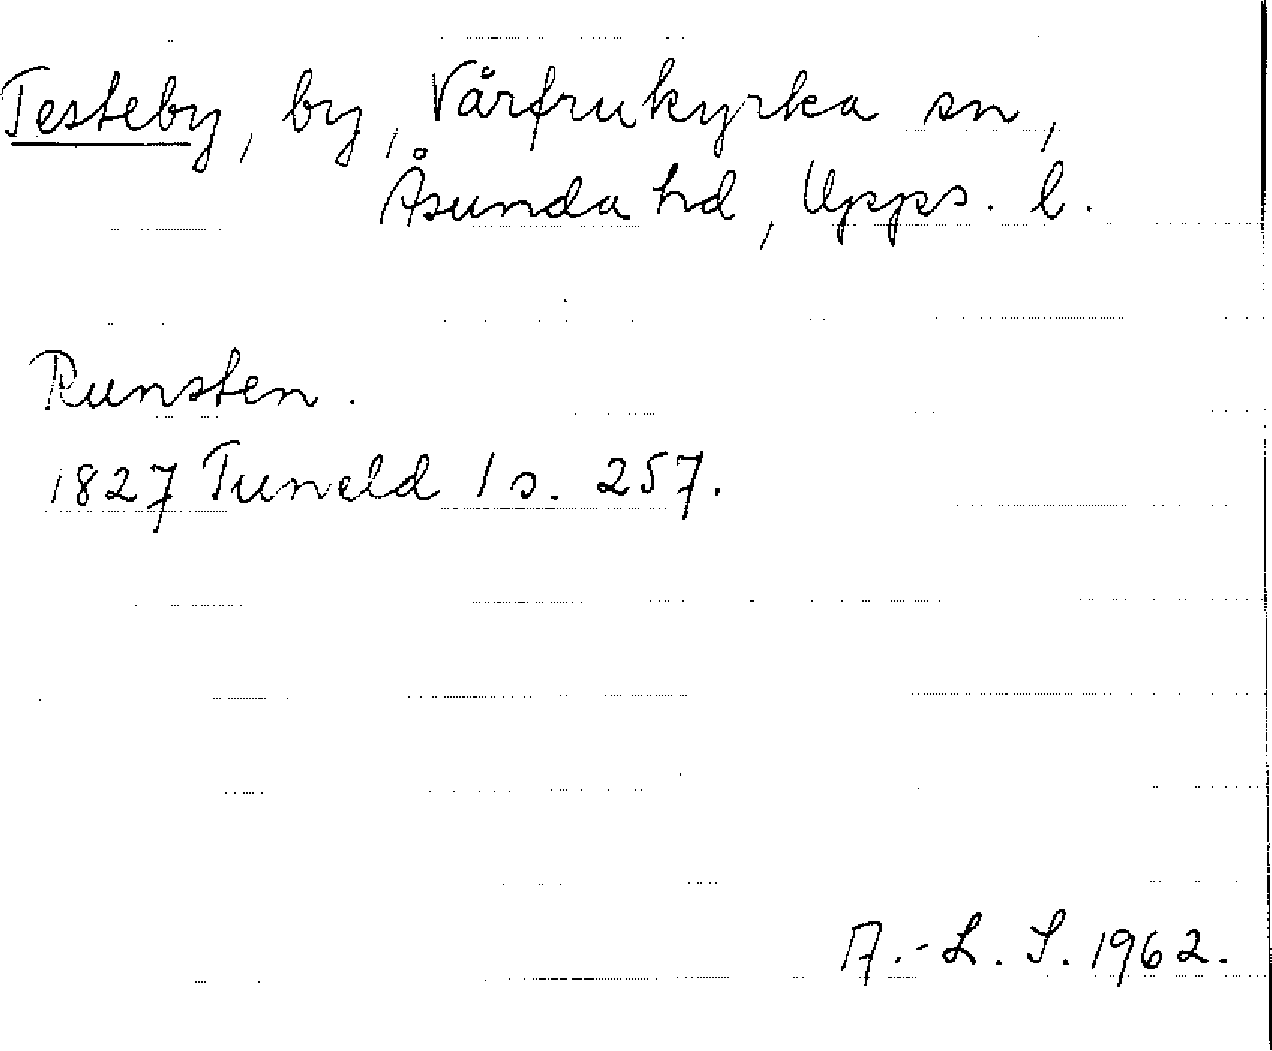 Testeby, by, Vårfrukyrka sn,
Åsunda hd, Upps. l.
Runsten.
1827 Tuneld 1 s. 257.
A.-L. S. 1962.